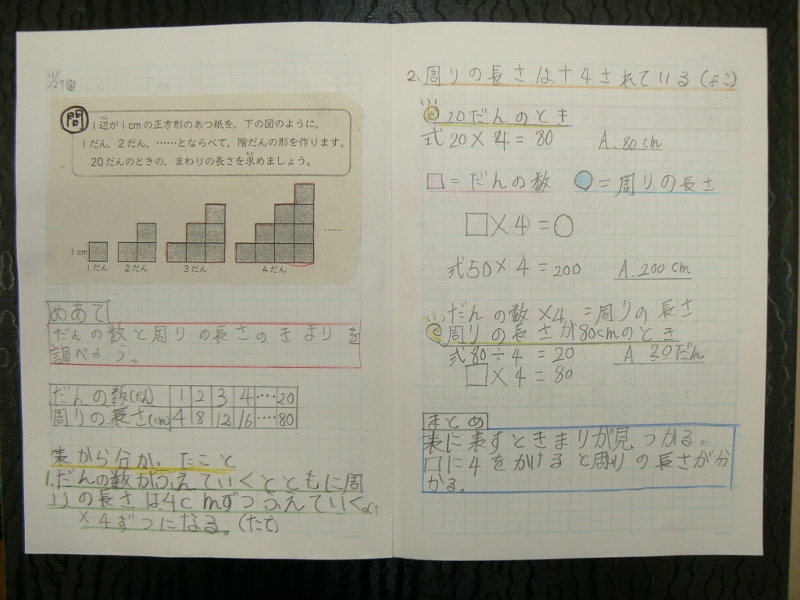 11/27㊎
問
1辺が1cmの正方形のあつ紙を、下の図のように、
1だん、2だん、……とならべて、階だんの形を作ります。
20だんのときの、まわりの長さを求めましょう。
1cm
……
1だん 2だん 3だん 4だん
めあて
だんの数と周りの長さのきまりを
調べよう。
だんの数(だん) 1 2 3 4 …… 20
周りの長さ(cm) 4 8 12 16 …… 80
表から分かったこと
1.だんの数がふえていくとともに周
りの長さは4cmずつふえていく。
×4ずつになる。(たて)
2.周りの長さは+4されている(よこ)
20だんのとき
式20×4=80 A.80cm
□=だんの数 ○=周りの長さ
□×4=○
式50×4=200 A.200cm
だんの数×4=周りの長さ
周りの長さが80cmのとき
式80÷4=20 A.20だん
□×4=80
まとめ
表に表すときまりが見つかる。
□に4をかけると周りの長さが分
かる。